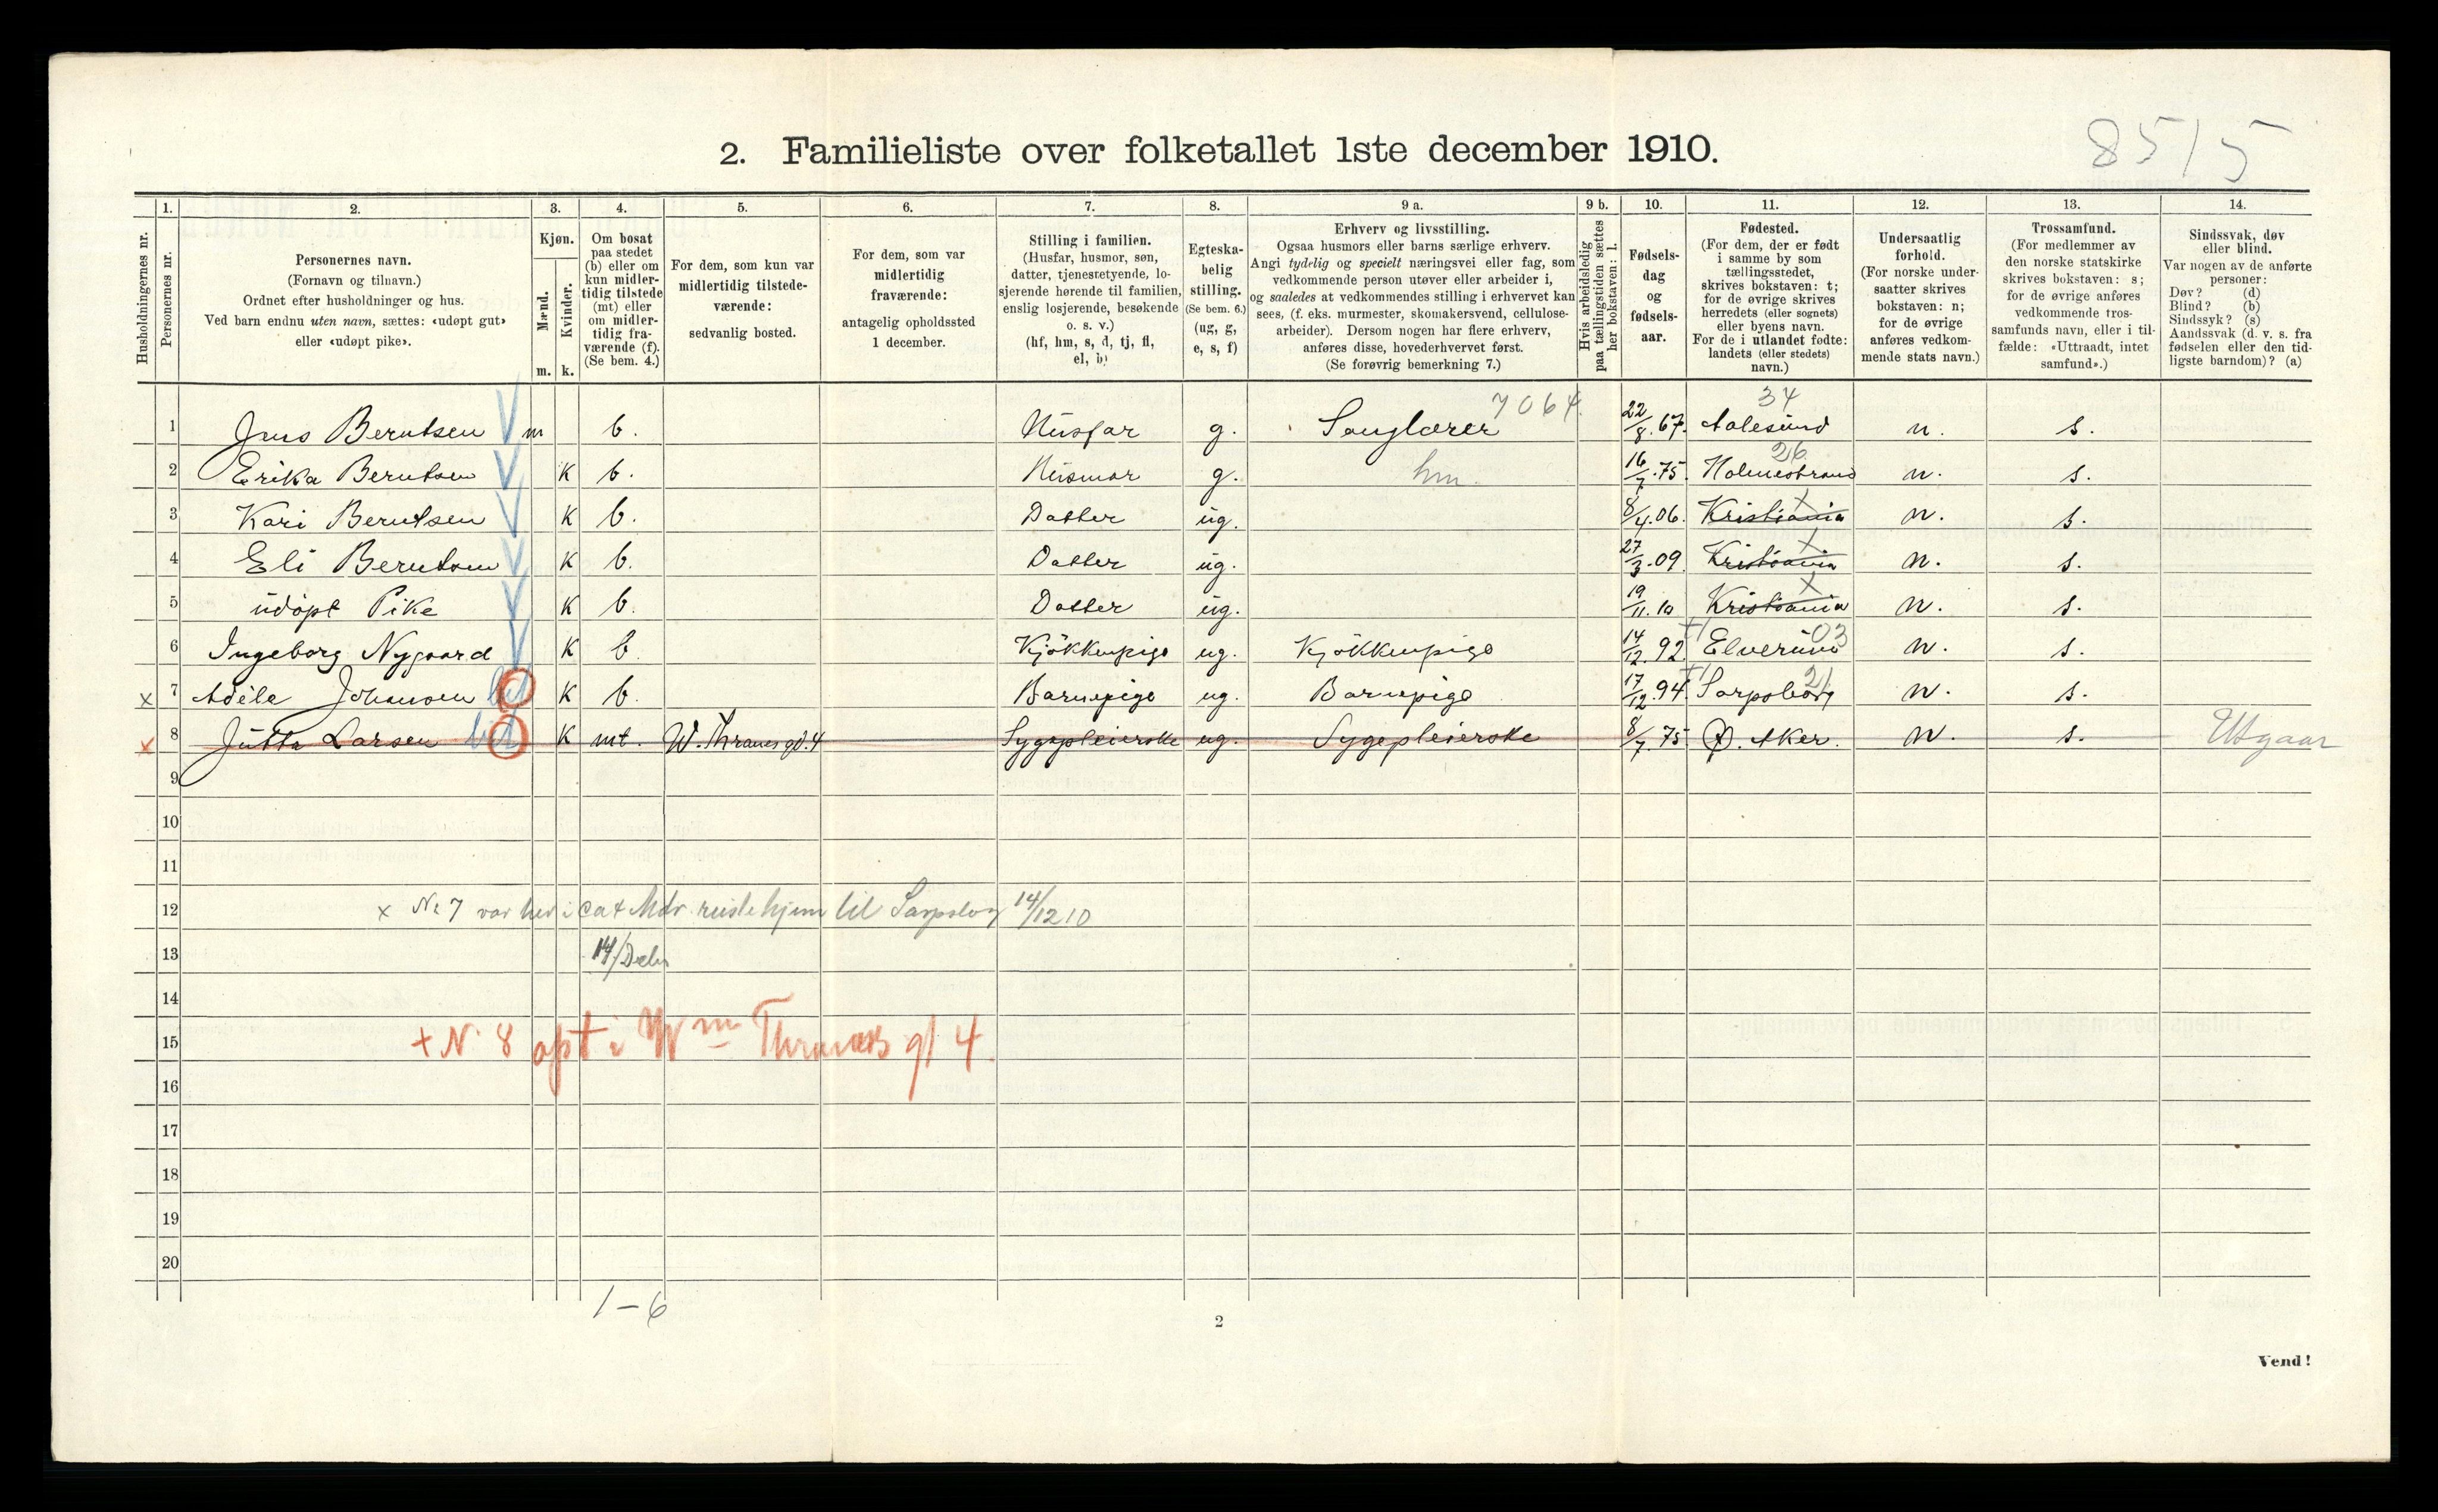 85/5
2. Familieliste over folketallet 1ste december 1910.
Husholdningernes nr.
1. Personernes nr.
2. Personernes navn. (Fornavn og tilnavn.) Ordnet efter husholdninger og hus. Ved barn endnu uten navn, sættes: «udøpt gut» eller «udøpt pike».
3. Kjøn. Mænd. m. Kvinder. k.
4. Om bosat paa stedet (b) eller om kun midler-tidig tilstede (mt) eller om midler-tidig fra-værende (f). (Se bem. 4.)
5. For dem, som kun var midlertidig tilstede-værende: sedvanlig bosted.
6. For dem, som var midlertidig fraværende: antagelig opholdssted 1 december.
7. Stilling i familien. (Husfar, husmor, søn, datter, tjenestetyende, lo-sjerende hørende til familien, enslig losjerende, besøkende o. s. v.) (hf, hm, s, d, tj, fl, el, b)
8. Egteska-belig stilling. (Se bem. 6.) (ug, g, e, s, f)
9 a. Erhverv og livsstilling. Ogsaa husmors eller barns særlige erhverv. Angi tydelig og specielt næringsvei eller fag, som vedkommende person utøver eller arbeider i, og saaledes at vedkommendes stilling i erhvervet kan sees, (f. eks. murmester, skomakersvend, cellulose-arbeider). Dersom nogen har flere erhverv, anføres disse, hovederhvervet først. (Se forøvrig bemerkning 7.)
9 b. Hvis arbeidsledig paa tællingstiden sættes her bokstaven: l.
10. Fødsels-dag og fødsels-aar.
11. Fødested. (For dem, der er født i samme by som tællingsstedet, skrives bokstaven: t; for de øvrige skrives herredets (eller sognets) eller byens navn. For de i utlandet fødte: landets (eller stedets) navn.)
12. Undersaatlig forhold. (For norske under-saatter skrives bokstaven: n; for de øvrige anføres vedkom-mende stats navn.)
13. Trossamfund. (For medlemmer av den norske statskirke skrives bokstaven: s; for de øvrige anføres vedkommende tros-samfunds navn, eller i til-fælde: «Uttraadt, intet samfund».)
14. Sindssvak, døv eller blind. Var nogen av de anførte personer: Døv? (d) Blind? (b) Sindssyk? (s) Aandssvak (d. v. s. fra fødselen eller den tid-ligste barndom)? (a)
7064 34
1 Jens Berntsen m b. Husfar g. Sanglærer 22/8.67. Aalesund n. s.
26
2 Erika Berntsen K b. Husmor g. hm 16/7.75. Holmestrand n. s.
3 Kari Berntsen K b. Datter ug. 8/4.06. Kristiania x n. s.
4 Eli Berntsen K b. Datter ug. 27/3.09. Kristiania x n. s.
5 udöpt Pike K b. Datter ug. 19/11.10 Kristiania x n. s.
6 Ingeborg Nygaard K b Kjökkenpige ug. Kjökkenpige 14/12.92. Elverum 03 n. s.
x 7 Adéle Johansen K b. Barnepige ug. Barnepige 17/12.94. Sarpsborg 21 n. s.
x 8 Jutta Larsen K mt. W. Thranes gd. 4 Sygepleierske ug. Sygepleierske 8/7.75 Ø. Aker. n. s. Utgaar
9
10
11
12 x No 7 var her i ca 4 Mdr reiste hjem til Sarpsborg 14/12 10
13 14/Decbr
14
15 + N 8 opt i Wm Thranes gt 4.
16
17
18
19
20
1-6
2
Vend!